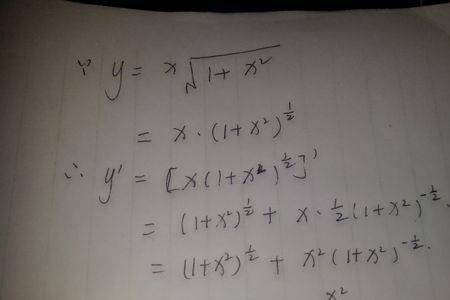 ∵ y = x√(1+x²)
= x·(1+x²)^½
∴ y' = [x(1+x²)^½]'
= (1+x²)^½ + x·½(1+x²)^-½.
= (1+x²)^½ + x²(1+x²)^-½.
x²